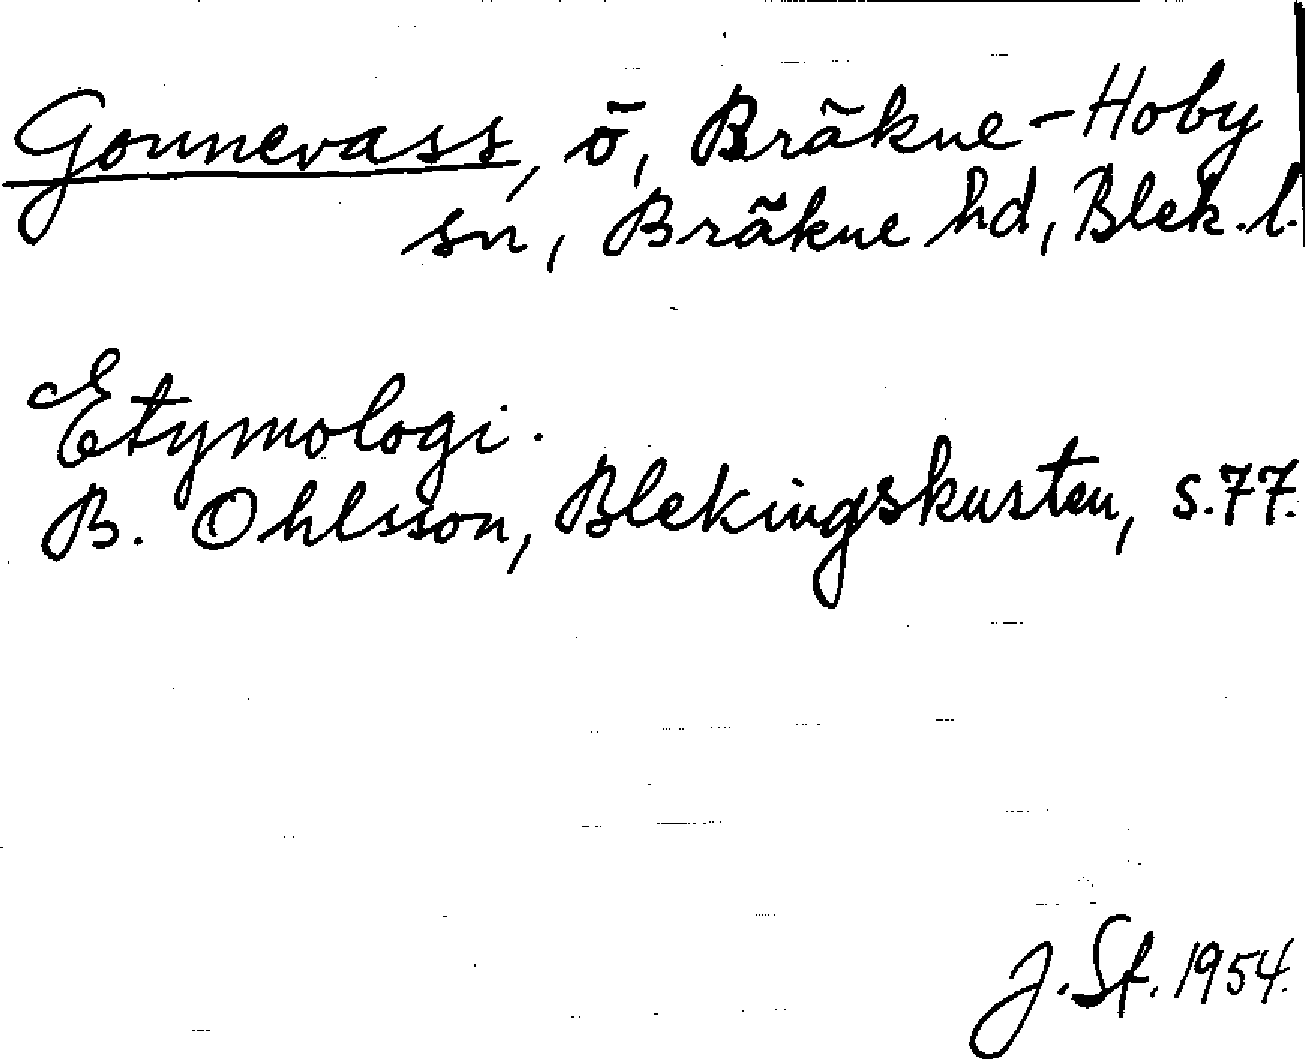 Gonnevass, ö, Bräkne-Hoby
sn, Bräkne hd, Blek. l.
Etymologi.
B. Ohlsson, Blekingskusten, s. 77.
J. Sf. 1954.